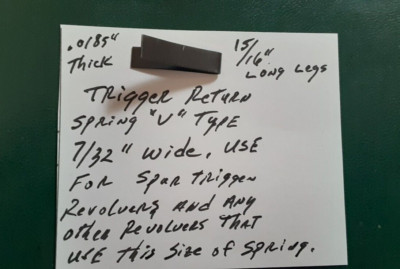 .0185" 15/16"
Thick Long Legs
Trigger Return
Spring "V" Type
7/32" wide. USE
For Spur Trigger
Revolvers And Any
other Revolvers That
use This Size of Spring.